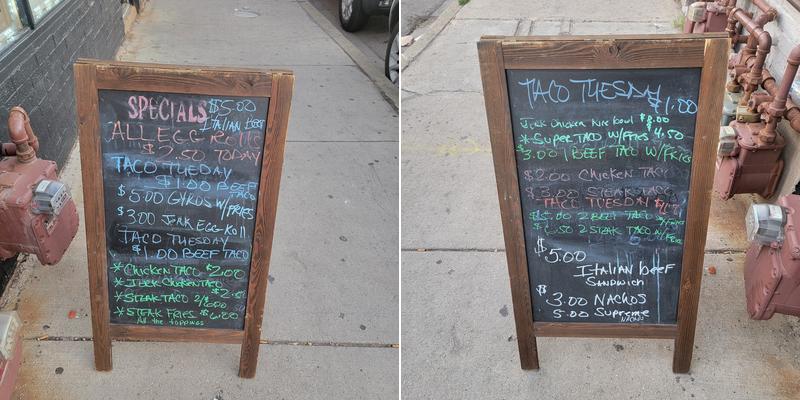 SPECIALS $5.00
ITALIAN BEEF
ALL EGG ROLLS
$2.50 TODAY
TACO TUEDAY
$1.00 BEEF
TACO
$5.00 GYROS W/FRIES
$3.00 JERK EGG ROLL
TACO TUESDAY
$1.00 BEEF TACO
*CHICKEN TACO $2.00
*JERK CHICKEN TACO
*STEAK TACO 2/$
*STEAK FRIES $6.00
All the toppings
TACO TUESDAY
$1.00
Jerk Chicken Rice bowl $8.00
*SUPER TACO W/FRIES $4.50
$3.00 1 BEEF TACO W/FRIES
$2.00 CHICKEN TACO
$3.00 STEAK TACO
TACO TUESDAY
$5.00 2 BEEF TACO W/FRIES
2 STEAK TACO W/FRIES
$5.00
ITALIAN BEEF
SANDWICH
$3.00 NACHOS
5.00 Supreme
NACHO